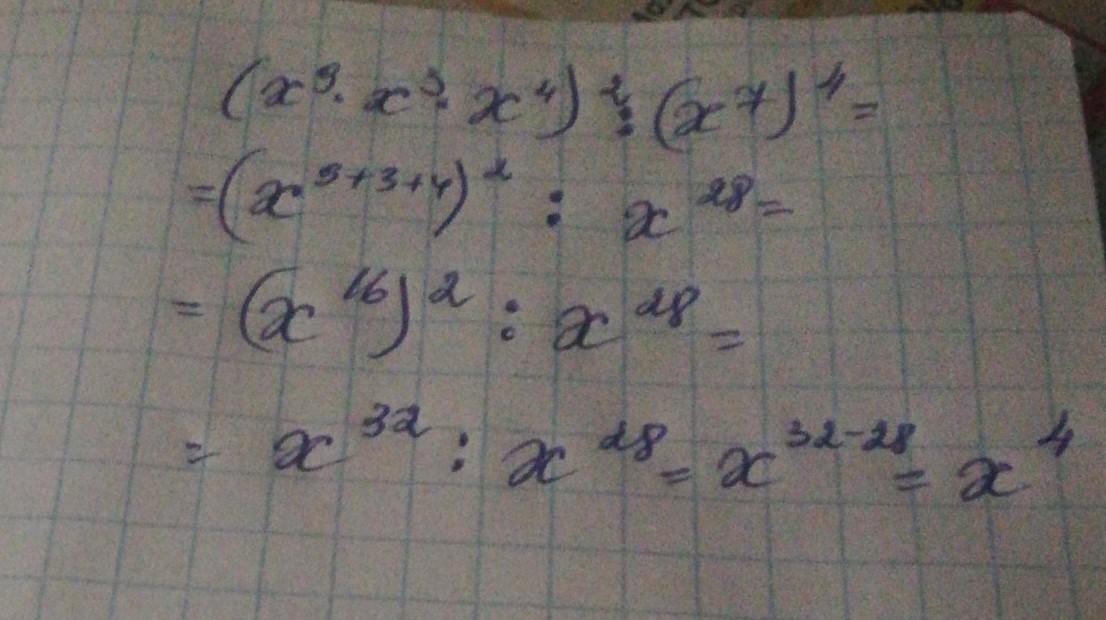 (x⁹·x³·x⁴)²:(x⁷)⁴=
=(x⁹⁺³⁺⁴)²:x²⁸=
=(x¹⁶)²:x²⁸=
=x³²:x²⁸=x³²⁻²⁸=x⁴